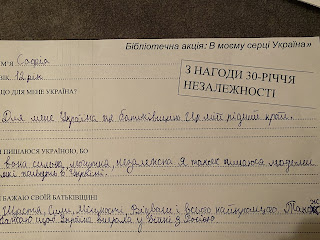 Бібліотечна акція: В моєму серці Україна»
З НАГОДИ 30-РІЧЧЯ
НЕЗАЛЕЖНОСТІ
М'Я Софія
ВІК 12 рік
ЩО ДЛЯ МЕНЕ УКРАЇНА?
Для мене Україна це батьківщина Це мій рідний край.
Я ПИШАЮСЯ УКРАЇНОЮ, БО
вона сильна, могутня, незалежна. Я також пишаюся людьми
які живуть в Україні.
БАЖАЮ СВОЇЙ БАТЬКІВЩИНІ
Щастя, Сили, Міцності, і всього найкращого. Також
бажаю щоб Україна виграла у Війні з Росією.